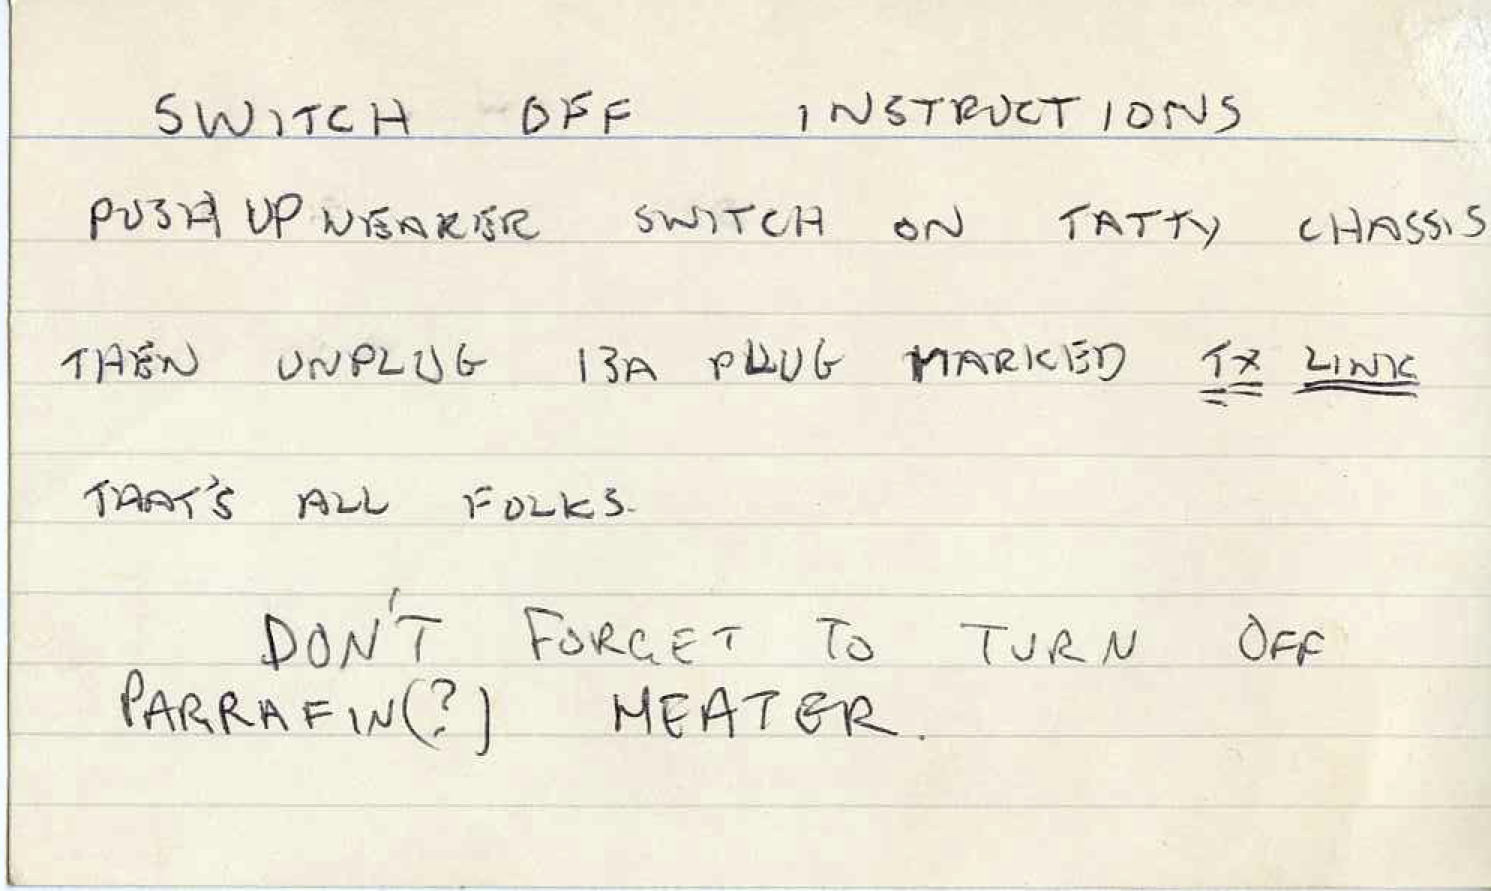 SWITCH OFF INSTRUCTIONS
PUSH UP NEARER SWITCH ON TATTY CHASSIS
THEN UNPLUG 13A PLUG MARKED TX LINK
THAT'S ALL FOLKS.
DON'T FORGET TO TURN OFF
PARRAFIN(?) HEATER.